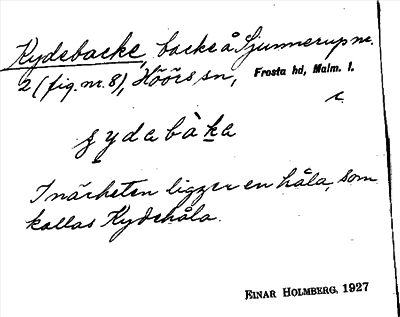 Kydebacke, backe å Sjunnerup nr.
2 (fig. nr. 8), Höörs sn, Frosta hd, Malm. l.
ydabàka
I närheten ligger en håla, som
kallas Kydehåla.
EINAR HOLMBERG, 1927